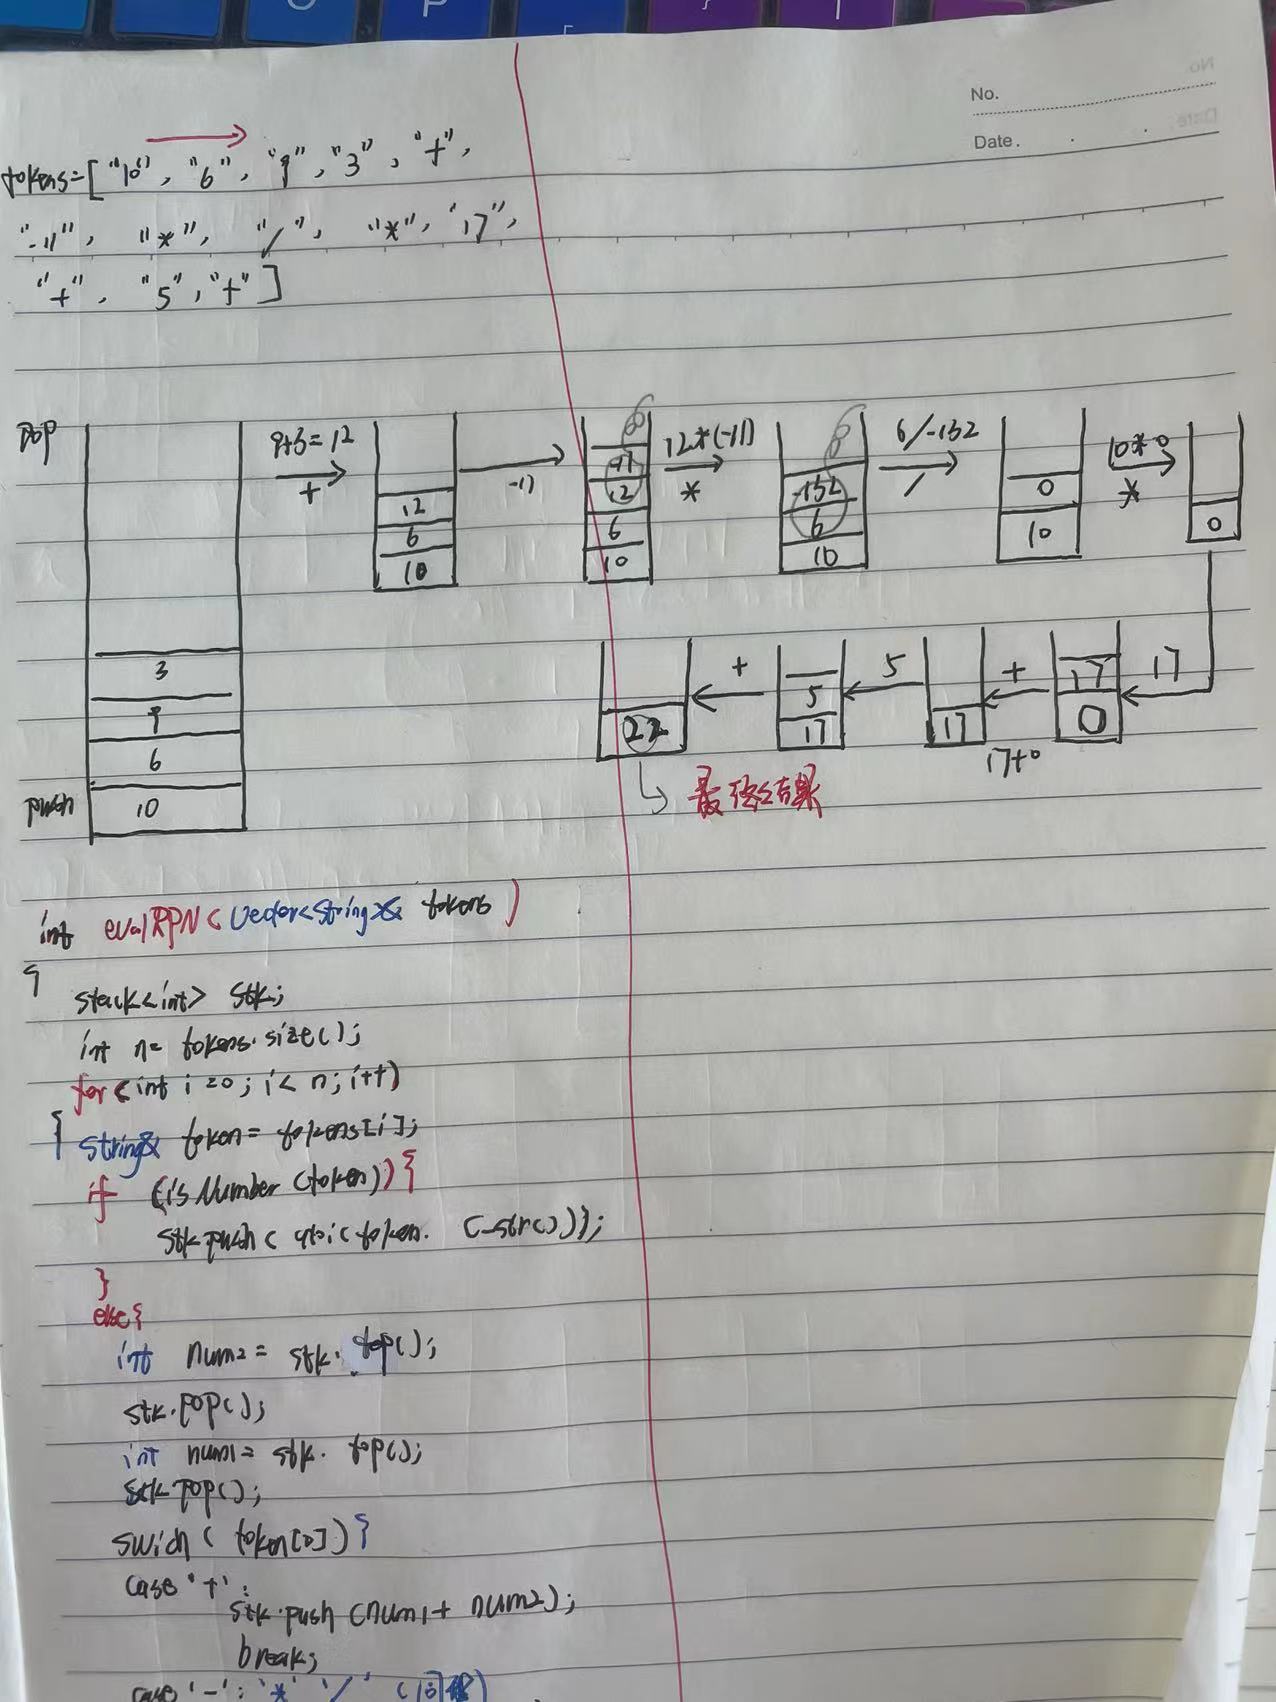 No.
Date.
tokens=["10", "6", "9", "3", "+",
"-11", "*", "/", "*", "17",
"+", "5", "+"]
pop
3
9
6
10
push
9+3=12
+
12
6
10
-11
-11
12
6
10
12*(-11)
*
-132
6
10
6/-132
/
0
10
10*0
*
0
17
17
0
+
17+0
17
5
5
17
+
22
最终结果
int evalRPN(vector<string>& tokens)
{
stack<int> stk;
int n= tokens.size();
for(int i=0; i< n; i++)
{ string& token= tokens[i];
if (isNumber(token)){
stk.push( atoi(token. c_str()));
}
else{
int num2= stk. top();
stk.pop();
int num1= stk. top();
stk.pop();
swich( token[0]){
case '+':
stk.push(num1+ num2);
break;
case '-': '*' '/'